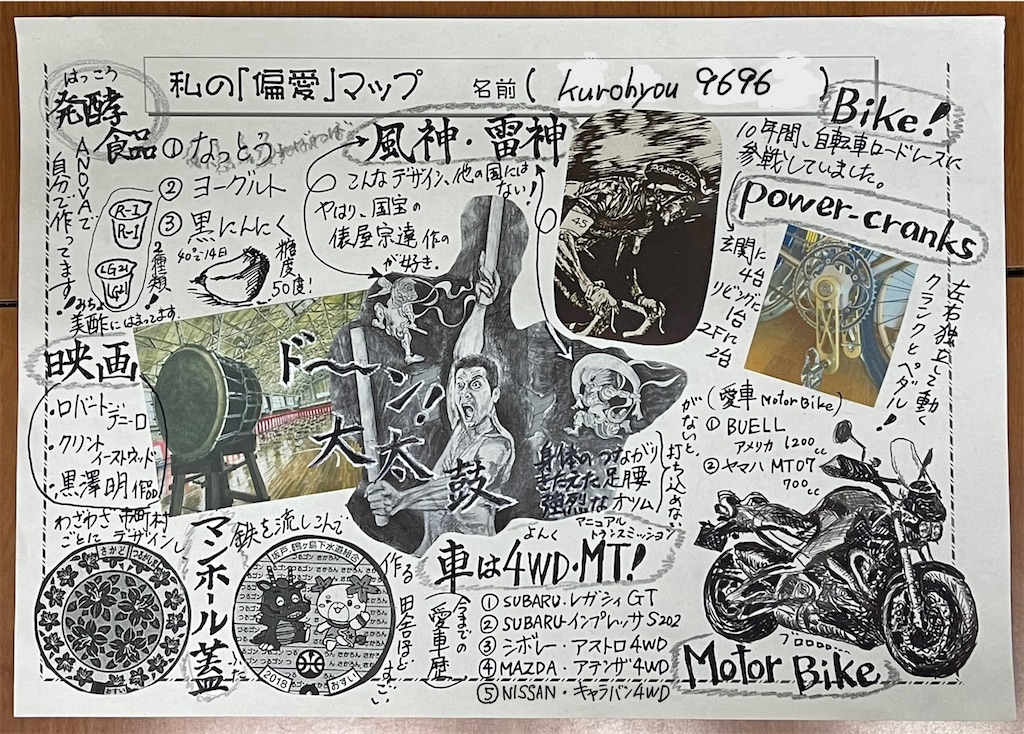 私の「偏愛」マップ
名前( kurohyou 9696 )
はっこう
発酵
食品
①なっとう
②ヨーグルト
③黒にんにく
ANOVAで
自分で作ってます!
R-1
R-1
LG21
LG21
2種類!
40℃で14日
糖度
50度!
みちょ
美酢にはまってます。
風神・雷神
こんなデザイン、他の国には
ない!
やはり、国宝の
俵屋宗達作の
が好き.
45
Bike!
10年間、自転車ロードレースに
参戦していました。
power-cranks
玄関に
4台
リビングに
1台
2Fに
2台
左右独立して動く
クランクとペダル!
映画
・ロバート
デニーロ
・クリント
イーストウッド
・黒澤明 作品
ドーン!
大太鼓
身体のつながり
きたえた足腰
強烈なオツム
がないと、
打ち込めない
(愛車 Motor Bike)
① BUELL
アメリカ 1200cc
② ヤマハ MT07
700cc
ブロロロ…
Motor Bike
わざわざ市町村
ごとにデザインし
鉄を流しこんで
作る
田舎ほど
すごい
マンホール蓋
ふた
さかど つるがしま
おすい
坂戸、鶴ヶ島下水道組合
つるゴン
さかろん
2018
おすい
よんく
マニュアル
トランスミッション
車は4WD・MT!
今までの
愛車歴
① SUBARU・レガシィ GT
② SUBARU・インプレッサ S202
③ シボレー・アストロ 4WD
④ MAZDA・アテンザ 4WD
⑤ NISSAN・キャラバン 4WD